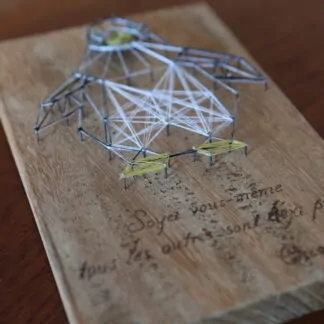 Soyez vous-même
tous les autres sont déjà p
Osca